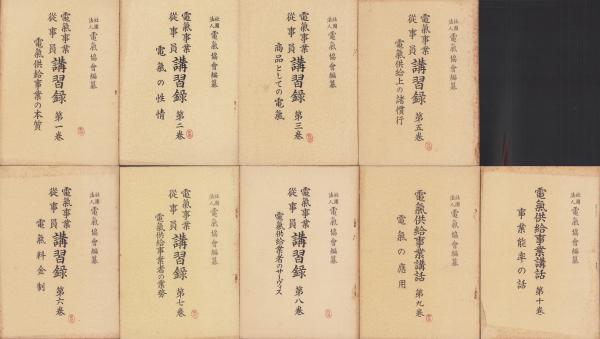 社団法人 電氣協會編纂
電氣事業從事員 講習録 第一卷
電氣供給事業の本質
社団法人 電氣協會編纂
電氣事業從事員 講習録 第二卷
電氣の性情
社団法人 電氣協會編纂
電氣事業從事員 講習録 第三卷
商品としての電氣
社団法人 電氣協會編纂
電氣事業從事員 講習録 第五卷
電氣供給上の諸慣行
社団法人 電氣協會編纂
電氣事業從事員 講習録 第六卷
電氣料金制
社団法人 電氣協會編纂
電氣事業從事員 講習録 第七卷
電氣供給事業者の業務
社団法人 電氣協會編纂
電氣事業從事員 講習録 第八卷
電氣供給業者のサーヴィス
社団法人 電氣協會編纂
電氣供給事業講話 第九卷
電氣の應用
社団法人 電氣協會編纂
電氣供給事業講話 第十卷
事業能率の話